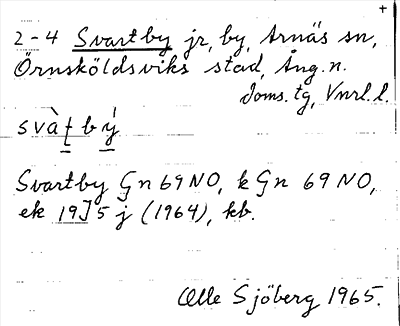 +
2-4 Svartby jr, by, Arnäs sn,
Örnsköldsviks stad, Ång. n.
Doms. tg, Vnrl. l.
svàt̲ bý̲
Svartby Gn 69 NO, k Gn 69 NO,
ek 19J5j (1964), kb.
Olle Sjöberg 1965.